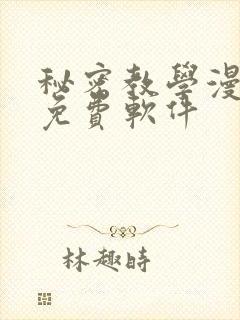 秘密教學漫
免費軟件
林趣時